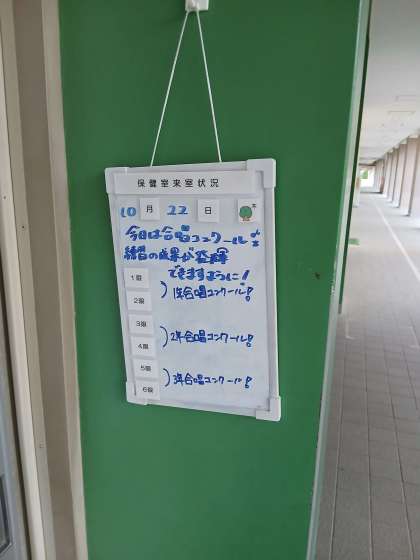 保健室来室状況
10月22日 木
今日は合唱コンクール♬
練習の成果が発揮
できますように!
1限
2限
)1年合唱コンクール!
3限
4限
)2年合唱コンクール!
5限
6限
)3年合唱コンクール!